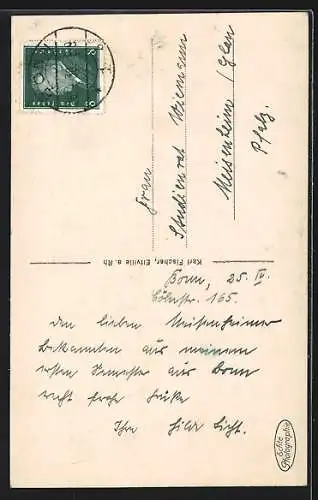 Bonn, 25. IV.
Cölnstr. 165.
Den lieben Meisenheimer
Bekannten aus meinem
ersten Semester aus Bonn
recht frohe Grüße
Ihre Hilde
Frau
Studienrat
Meisenheim / Glan
Pfalz.
Karl Fischer, Eltville a. Rh.
Echte
Photographie
8 8